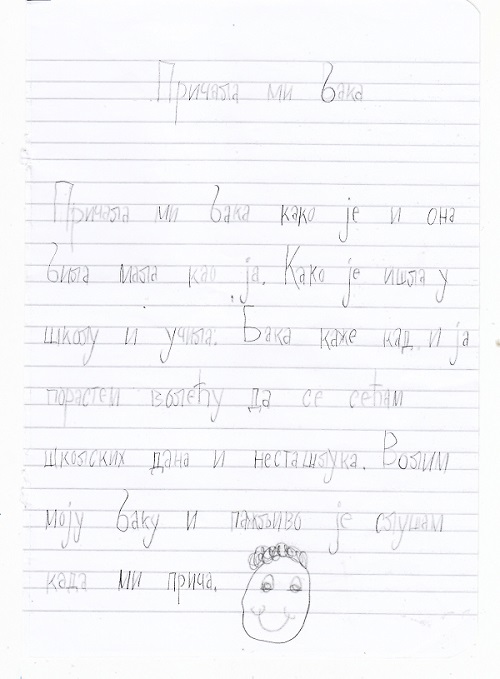 Причала ми бака
Причала ми бака како је и она
била мала као ја. Како је ишла у
школу и учила. Бака каже кад и ја
порастем волећу да се сећам
школских дана и несташлука. Волим
моју баку и пажљиво је слушам
када ми прича.